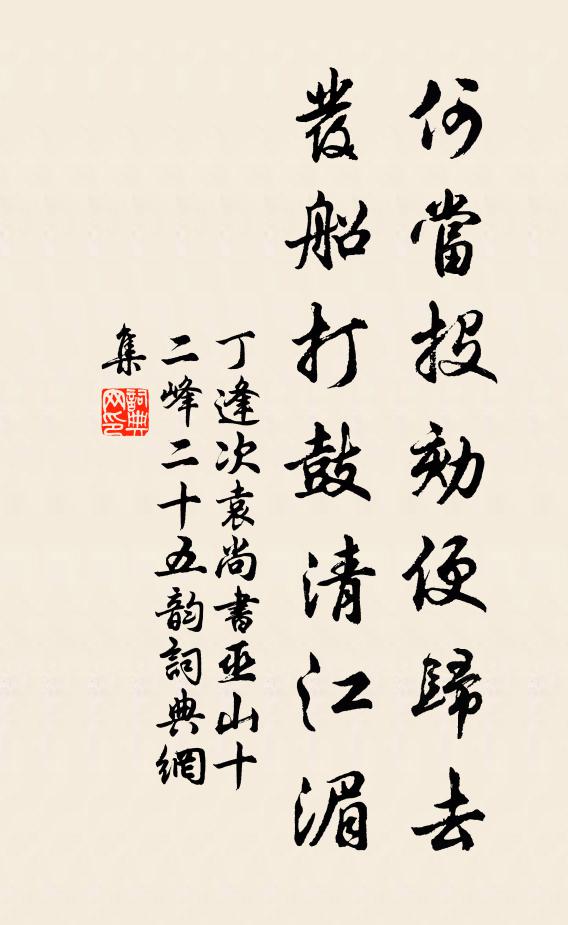 何當投劾便歸去
發船打鼓清江湄
丁逢次袁尚書巫山十
二峰二十五韵詞典網
集
詞典
网印